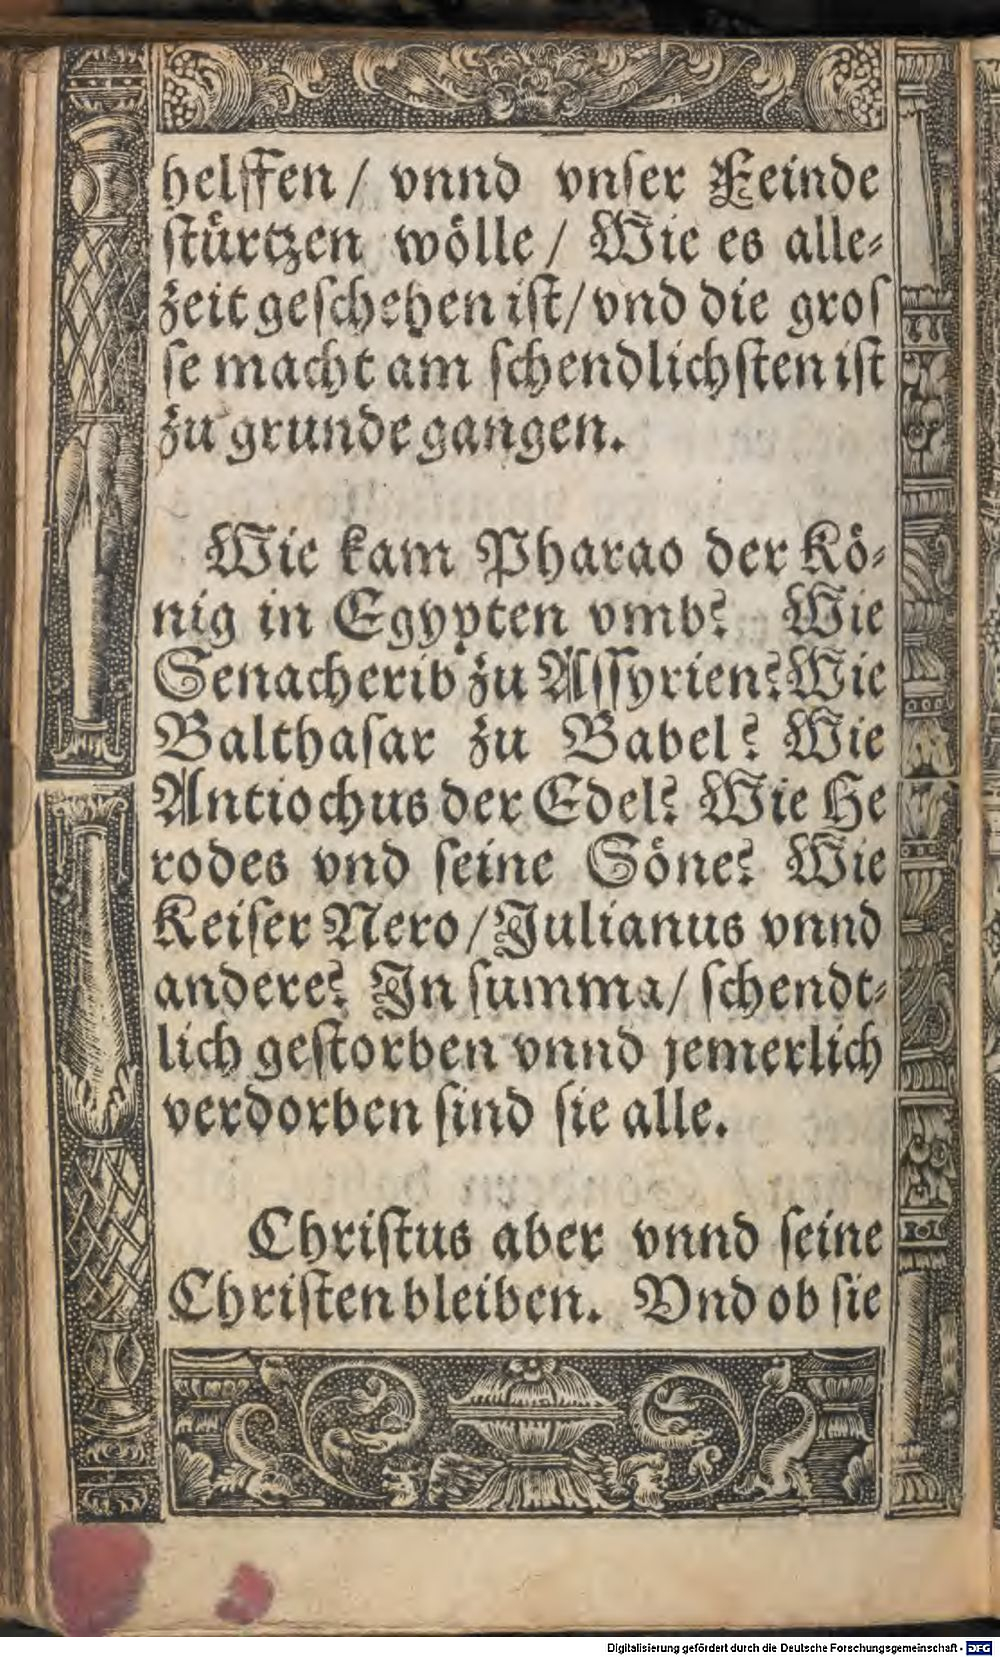 helffen / vnnd vnſer Feinde
ſtürtzen wölle / Wie es alle⸗
zeit geſchehen iſt / vnd die groſ
ſe macht am ſchendlichſten iſt
zu grunde gangen.
Wie kam Pharao der Kö⸗
nig in Egypten vmb? Wie
Senacherib zu Aſſyrien? Wie
Balthaſar zu Babel? Wie
Antiochus der Edel? Wie He
rodes vnd ſeine Söne? Wie
Keiſer Nero / Julianus vnnd
andere? In ſumma / ſchendt⸗
lich geſtorben vnnd jemerlich
verdorben ſind ſie alle.
Chriſtus aber vnnd ſeine
Chriſten bleiben. Vnd ob ſie
Digitalisierung gefördert durch die Deutsche Forschungsgemeinschaft - DFG